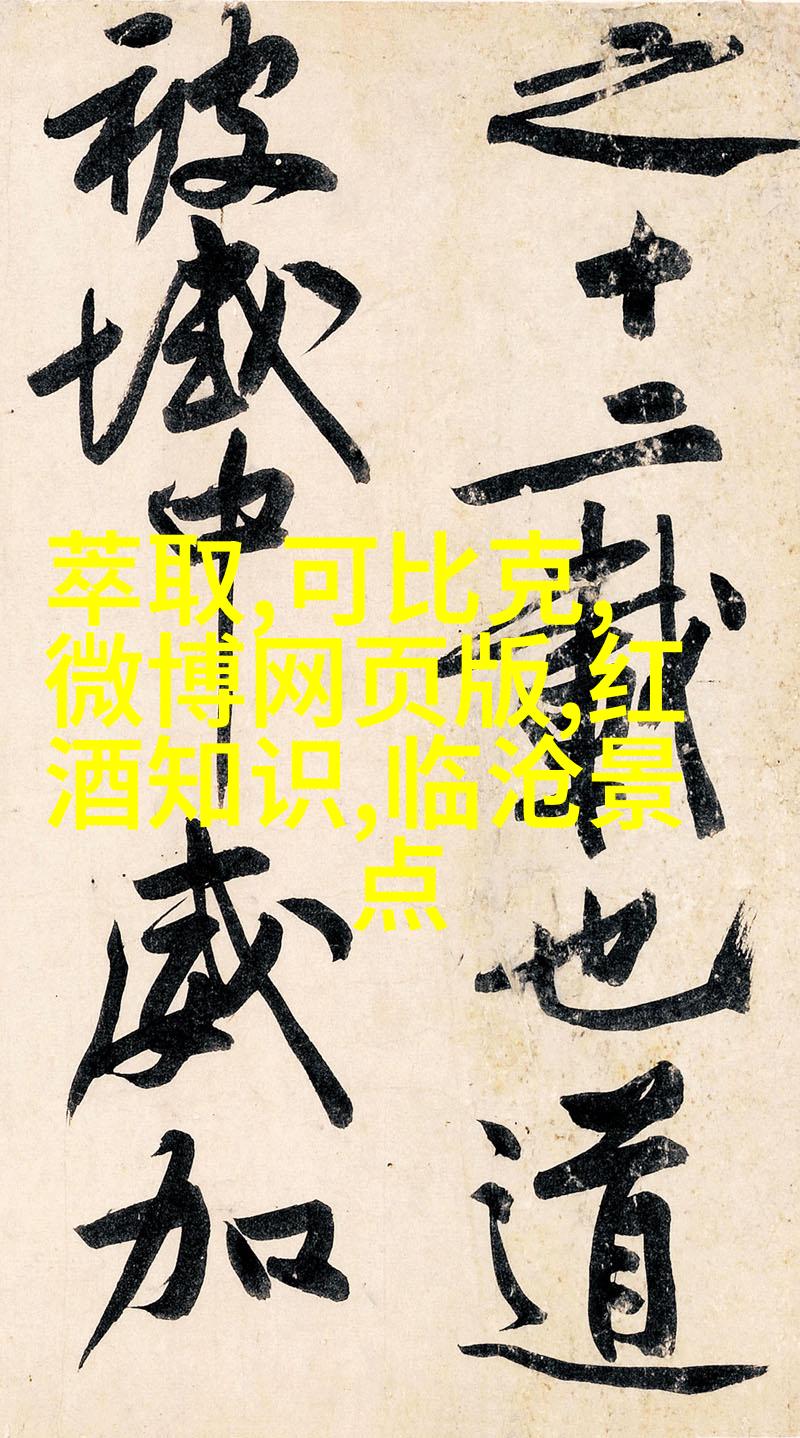 之十二載也道
被域中威加
萃取,可比克,
微博网页版,红
酒知识,临沧景
点